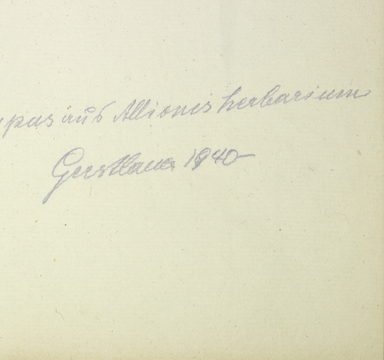 pus aus Alliones herbarium
Gerstlauer 1940